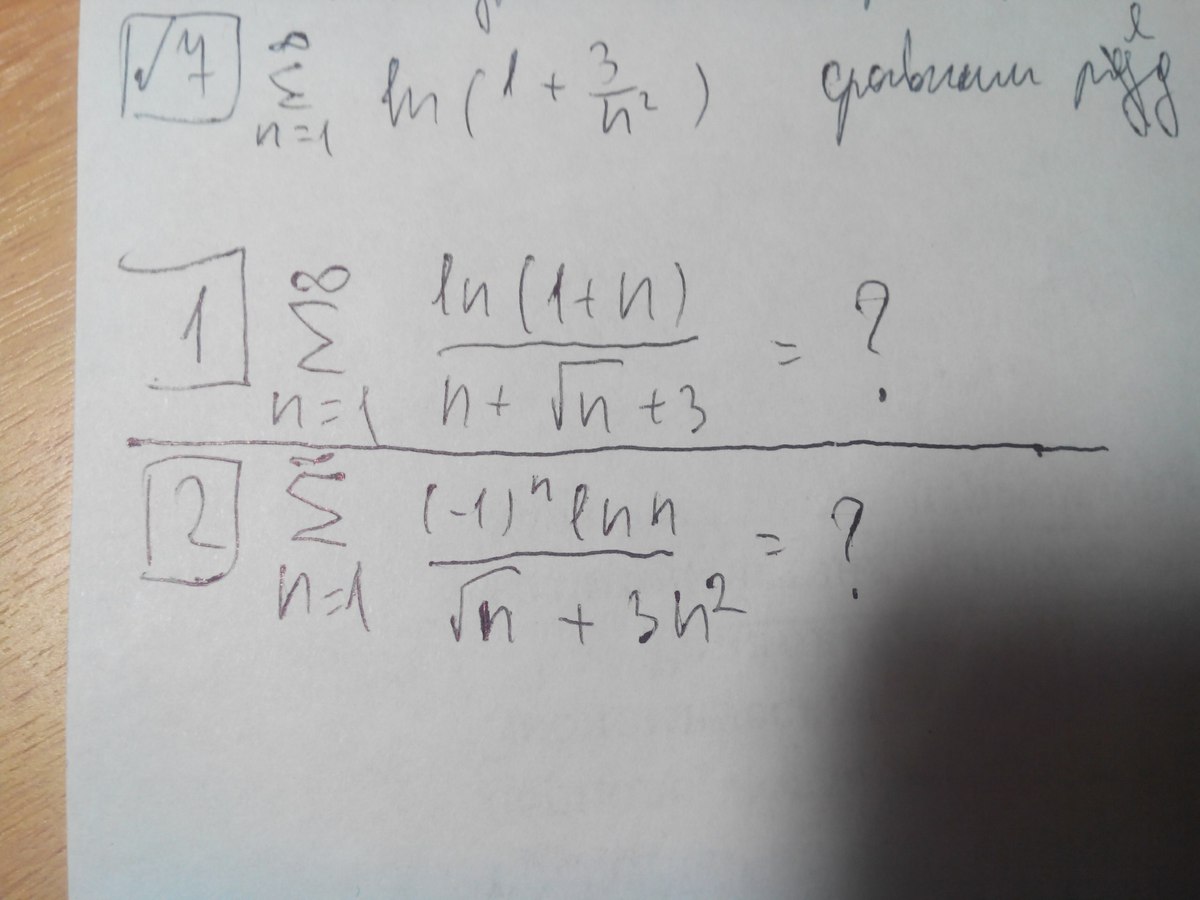 √7 ∑_{n=1}^{∞} ln(1 + 3/n²) сравним
1 ∑_{n=1}^{∞} ln(1+n) / (n + √n + 3) = ?
2 ∑_{n=1}^{∞} (-1)ⁿ ln n / (√n + 3n²) = ?